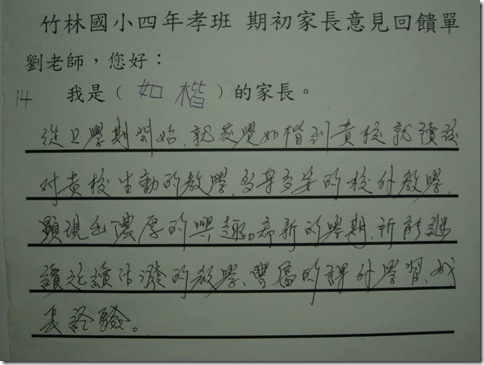 竹林國小四年孝班 期初家長意見回饋單
劉老師，您好：
14 我是（如楷）的家長。
從上學期開始，就發覺如楷到貴校就讀後
對貴校生動的教學、多草多姿的校外教學，
顯現出濃厚的興趣。希新的學期，祈能繼
續延續活潑的教學、豐富的課外學習、成
長經驗。